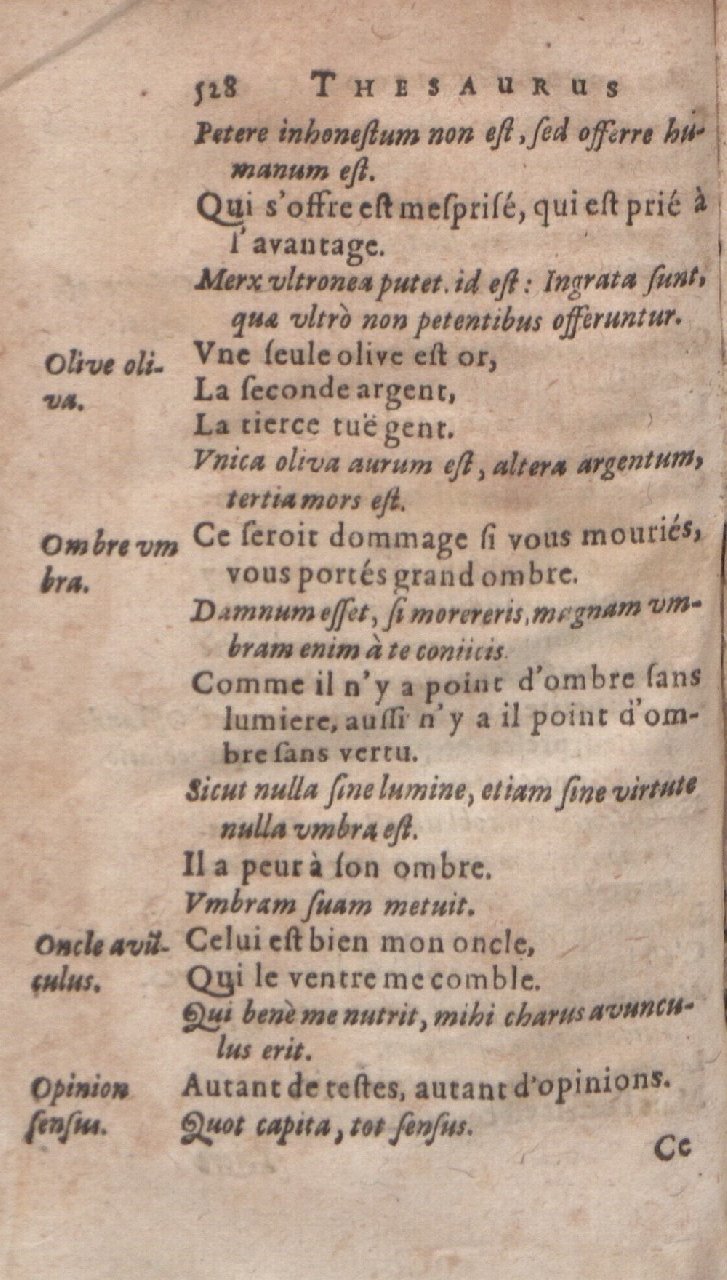 528 THESAURUS
Petere inhoneſtum non eſt, ſed offerre hu-
manum eſt.
Qui s'offre eſt meſpriſé, qui eſt prié à
l'avantage.
Merx vltronea putet. id eſt: Ingrata ſunt,
quæ vltrò non petentibus offeruntur.
Olive oli-
va.
Vne ſeule olive eſt or,
La ſeconde argent,
La tierce tuë gent.
Vnica oliva aurum eſt, altera argentum,
tertia mors eſt.
Ombre vm
bra.
Ce ſeroit dommage ſi vous mouriés,
vous portés grand ombre.
Damnum eſſet, ſi morereris, magnam vm-
bram enim à te coniicis.
Comme il n'y a point d'ombre ſans
lumiere, auſſi n'y a il point d'om-
bre ſans vertu.
Sicut nulla ſine lumine, etiam ſine virtute
nulla vmbra eſt.
Il a peur à ſon ombre.
Vmbram ſuam metuit.
Oncle avũ-
culus.
Celui eſt bien mon oncle,
Qui le ventre me comble.
Qui benè me nutrit, mihi charus avuncu-
lus erit.
Opinion
ſenſus.
Autant de teſtes, autant d'opinions.
Quot capita, tot ſenſus.
Ce